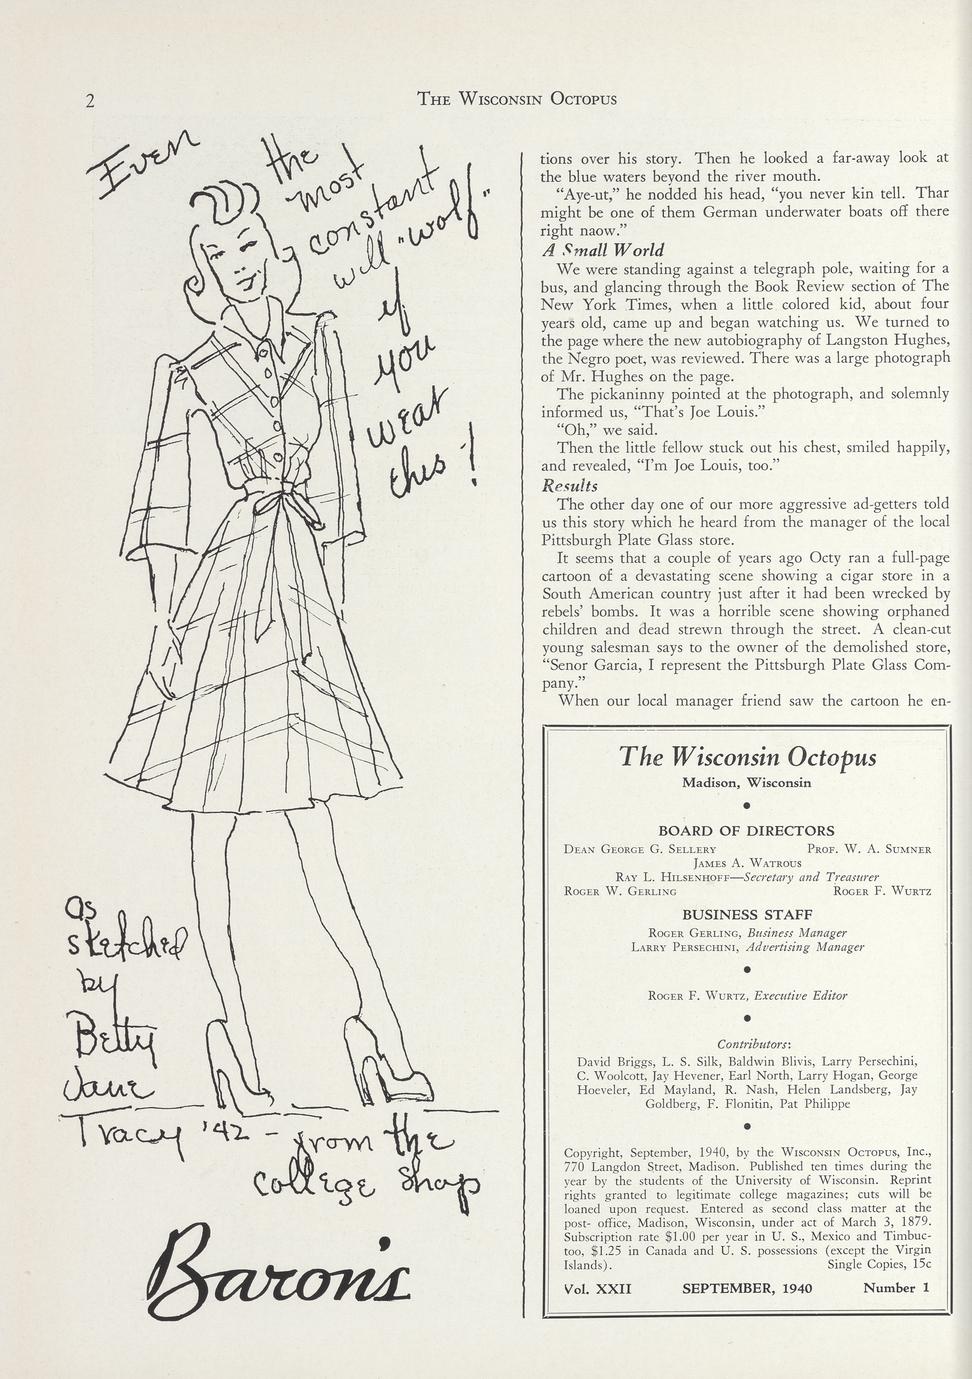 2
THE WISCONSIN OCTOPUS
Even
the
most
constant
will "wolf"
if
you
wear
this!
as
sketched
by
Betty
Jane
Tracy '42 - from the
college shop
Baron's
tions over his story. Then he looked a far-away look at
the blue waters beyond the river mouth.
“Aye-ut,” he nodded his head, “you never kin tell. Thar
might be one of them German underwater boats off there
right naow.”
A Small World
We were standing against a telegraph pole, waiting for a
bus, and glancing through the Book Review section of The
New York Times, when a little colored kid, about four
years old, came up and began watching us. We turned to
the page where the new autobiography of Langston Hughes,
the Negro poet, was reviewed. There was a large photograph
of Mr. Hughes on the page.
The pickaninny pointed at the photograph, and solemnly
informed us, “That’s Joe Louis.”
“Oh,” we said.
Then the little fellow stuck out his chest, smiled happily,
and revealed, “I’m Joe Louis, too.”
Results
The other day one of our more aggressive ad-getters told
us this story which he heard from the manager of the local
Pittsburgh Plate Glass store.
It seems that a couple of years ago Octy ran a full-page
cartoon of a devastating scene showing a cigar store in a
South American country just after it had been wrecked by
rebels’ bombs. It was a horrible scene showing orphaned
children and dead strewn through the street. A clean-cut
young salesman says to the owner of the demolished store,
“Senor Garcia, I represent the Pittsburgh Plate Glass Com-
pany.”
When our local manager friend saw the cartoon he en-
The Wisconsin Octopus
Madison, Wisconsin
•
BOARD OF DIRECTORS
DEAN GEORGE G. SELLERY PROF. W. A. SUMNER
JAMES A. WATROUS
RAY L. HILSENHOFF—Secretary and Treasurer
ROGER W. GERLING ROGER F. WURTZ
BUSINESS STAFF
ROGER GERLING, Business Manager
LARRY PERSECHINI, Advertising Manager
•
ROGER F. WURTZ, Executive Editor
•
Contributors:
David Briggs, L. S. Silk, Baldwin Blivis, Larry Persechini,
C. Woolcott, Jay Hevener, Earl North, Larry Hogan, George
Hoeveler, Ed Mayland, R. Nash, Helen Landsberg, Jay
Goldberg, F. Flonitin, Pat Philippe
•
Copyright, September, 1940, by the WISCONSIN OCTOPUS, Inc.,
770 Langdon Street, Madison. Published ten times during the
year by the students of the University of Wisconsin. Reprint
rights granted to legitimate college magazines; cuts will be
loaned upon request. Entered as second class matter at the
post- office, Madison, Wisconsin, under act of March 3, 1879.
Subscription rate $1.00 per year in U. S., Mexico and Timbuc-
too, $1.25 in Canada and U. S. possessions (except the Virgin
Islands). Single Copies, 15c
Vol. XXII SEPTEMBER, 1940 Number 1